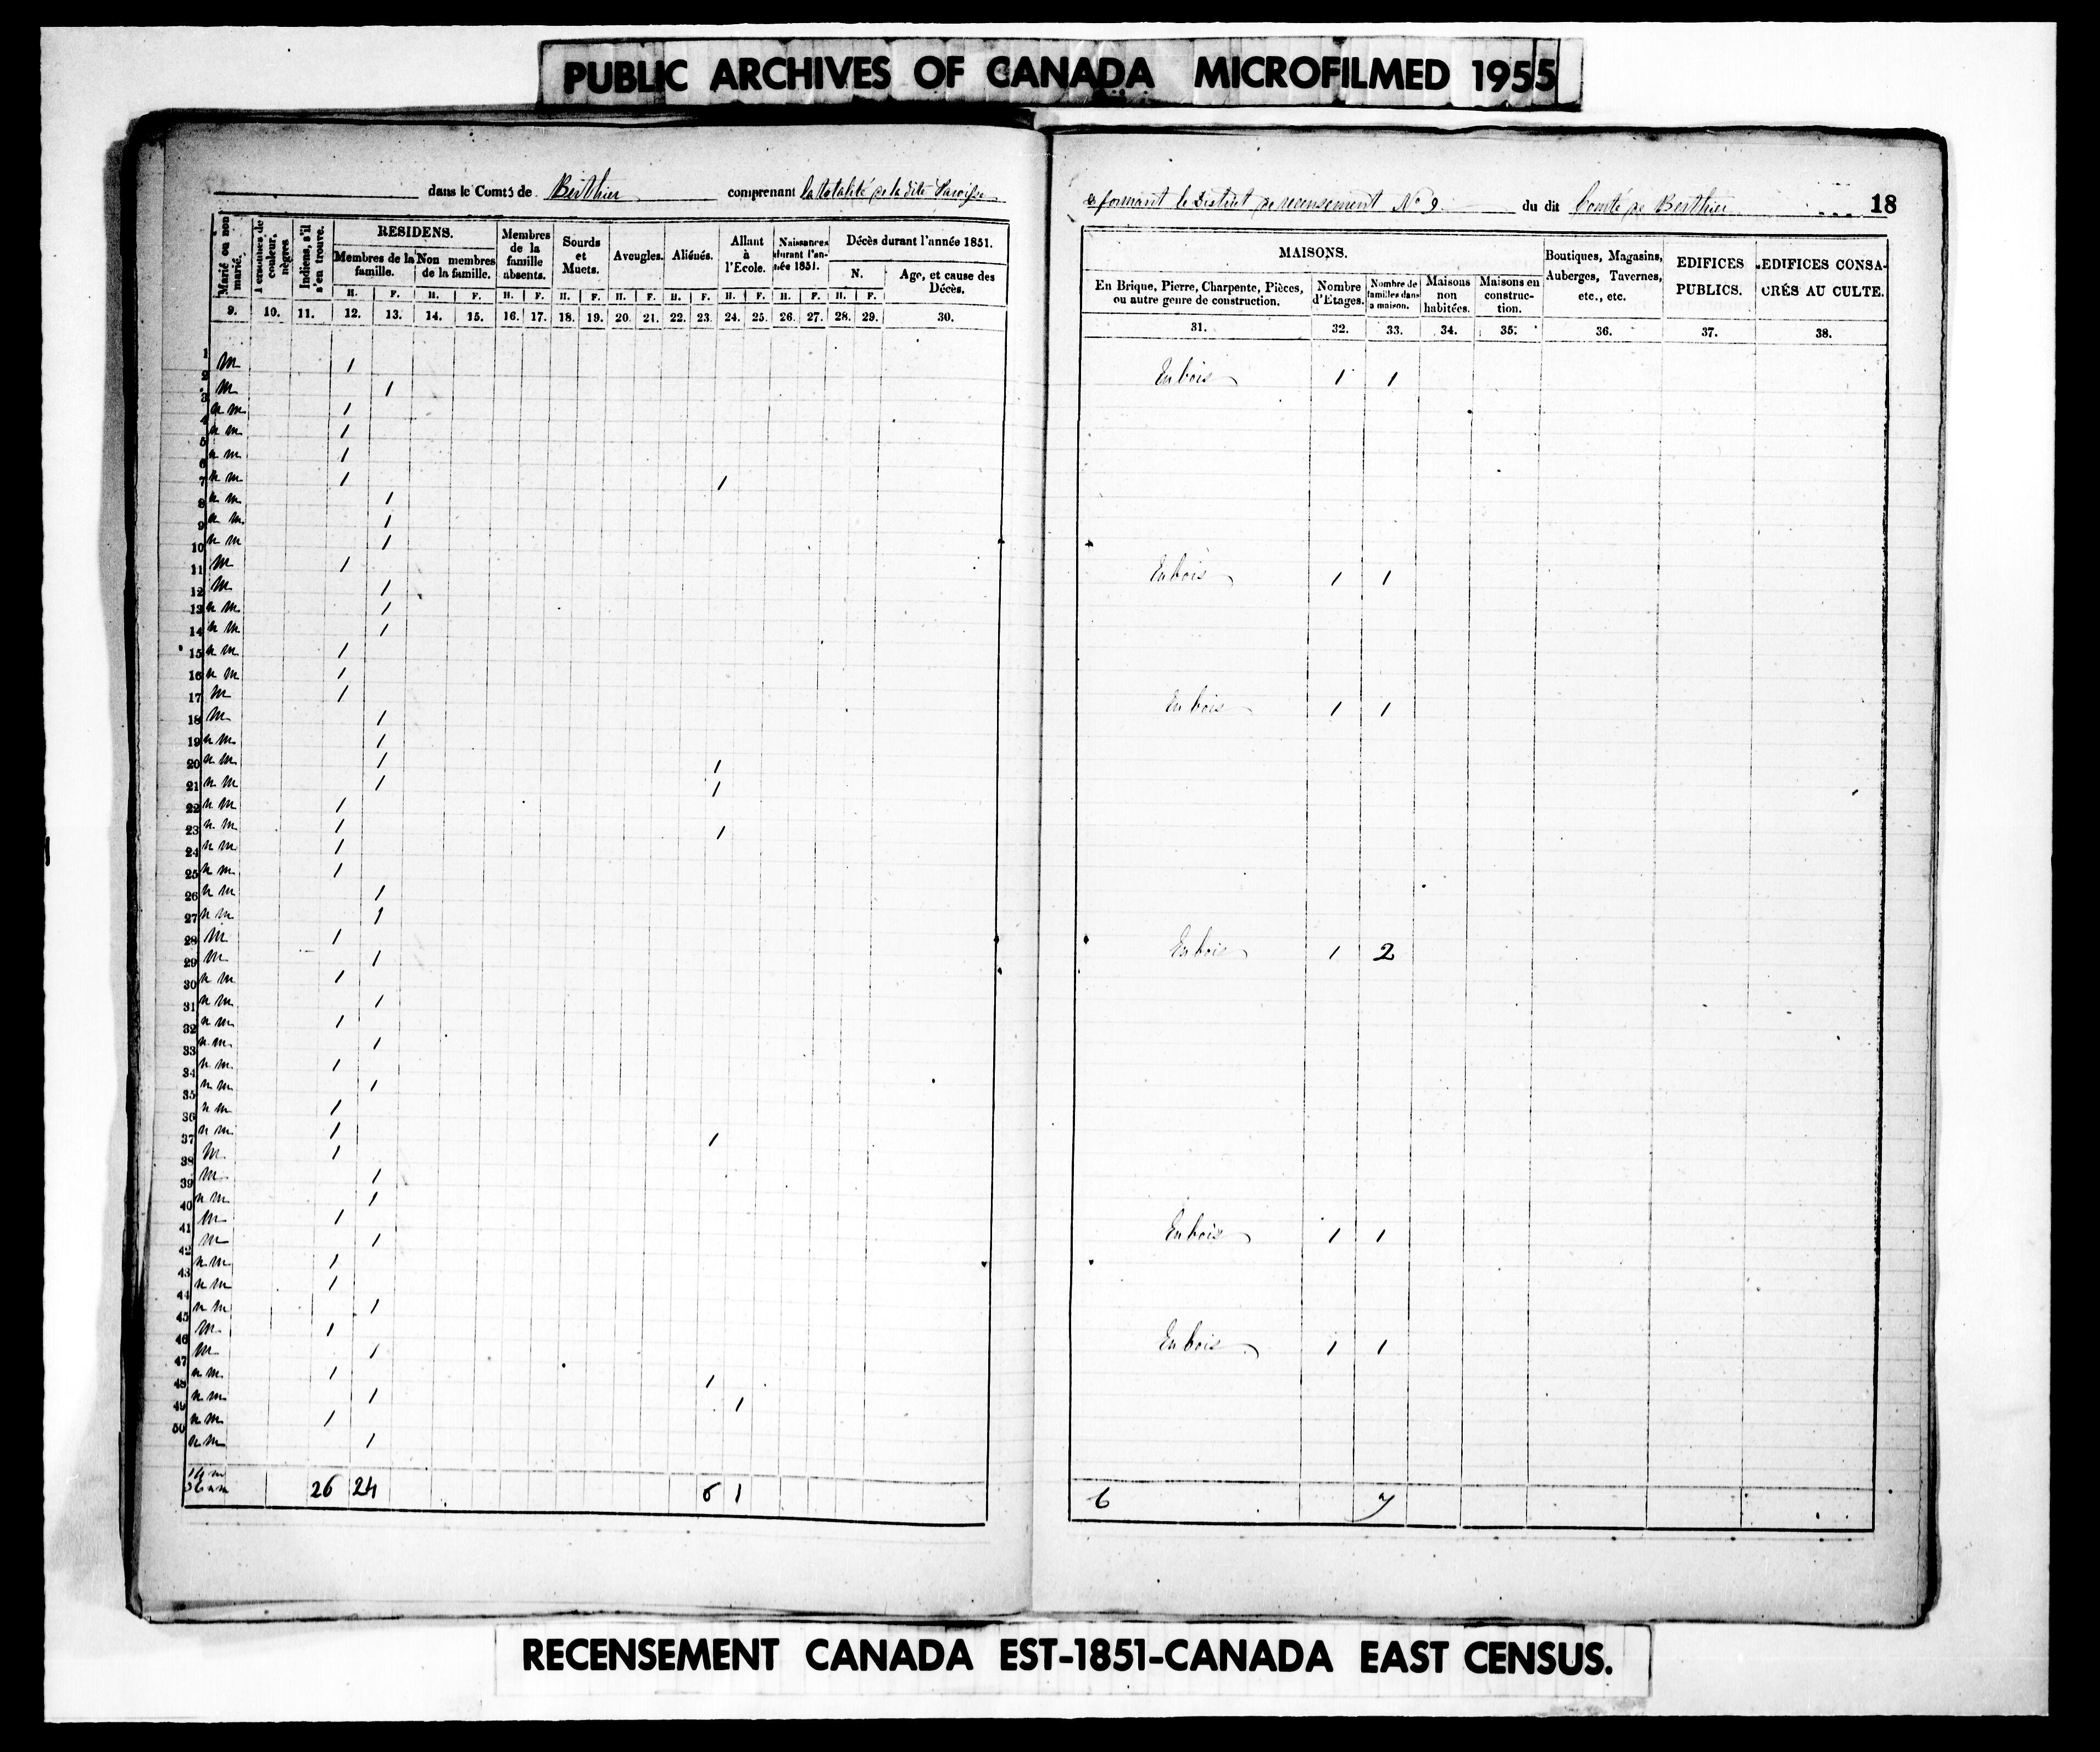 PUBLIC ARCHIVES OF CANADA MICROFILMED 1955
dans le Comté de Berthier comprenant la totalité de la dite Paroisse
& formant le District de recensement No 9 du dit Comté de Berthier 18
Marié ou non marié.
Personnes de couleur, nègres
Indiens, s'il s'en trouve.
RESIDENS.
Membres de la famille.
Non membres de la famille.
Membres de la famille absents.
Sourds et Muets.
Aveugles.
Aliénés.
Allant à l'Ecole.
Naissances durant l'année 1851.
Décès durant l'année 1851.
N.
Age, et cause des Décès.
H. F. H. F. H. F. H. F. H. F. H. F. H. F. H. F. H. F.
9. 10. 11. 12. 13. 14. 15. 16. 17. 18. 19. 20. 21. 22. 23. 24. 25. 26. 27. 28. 29. 30.
MAISONS.
En Brique, Pierre, Charpente, Pièces, ou autre genre de construction.
Nombre d'Etages.
Nombre de familles dans la maison.
Maisons non habitées.
Maisons en construction.
Boutiques, Magasins, Auberges, Tavernes, etc., etc.
EDIFICES PUBLICS.
EDIFICES CONSACRÉS AU CULTE.
31. 32. 33. 34. 35. 36. 37. 38.
1 m 1 En bois 1 1
2 m 1
3 n m 1
4 n m 1
5 n m 1
6 n m 1 1
7 n m 1
8 n m 1
9 n m 1
10 m 1 En bois 1 1
11 m 1
12 n m 1
13 n m 1
14 n m 1
15 n m 1
16 m 1 En bois 1 1
17 m 1
18 n m 1
19 n m 1 1
20 n m 1 1
21 n m 1
22 n m 1 1
23 n m 1
24 n m 1
25 n m 1
26 n m 1
27 m 1 En bois 1 2
28 m 1
29 n m 1
30 n m 1
31 n m 1
32 n m 1
33 n m 1
34 n m 1
35 n m 1
36 n m 1 1
37 m 1
38 m 1
39 n m 1
40 m 1 En bois 1 1
41 m 1
42 n m 1
43 n m 1
44 n m 1
45 m 1 En bois 1 1
46 m 1
47 n m 1 1
48 n m 1 1
49 n m 1
50 n m 1
14 m
36 n m 26 24 6 1 6 7
RECENSEMENT CANADA EST-1851-CANADA EAST CENSUS.